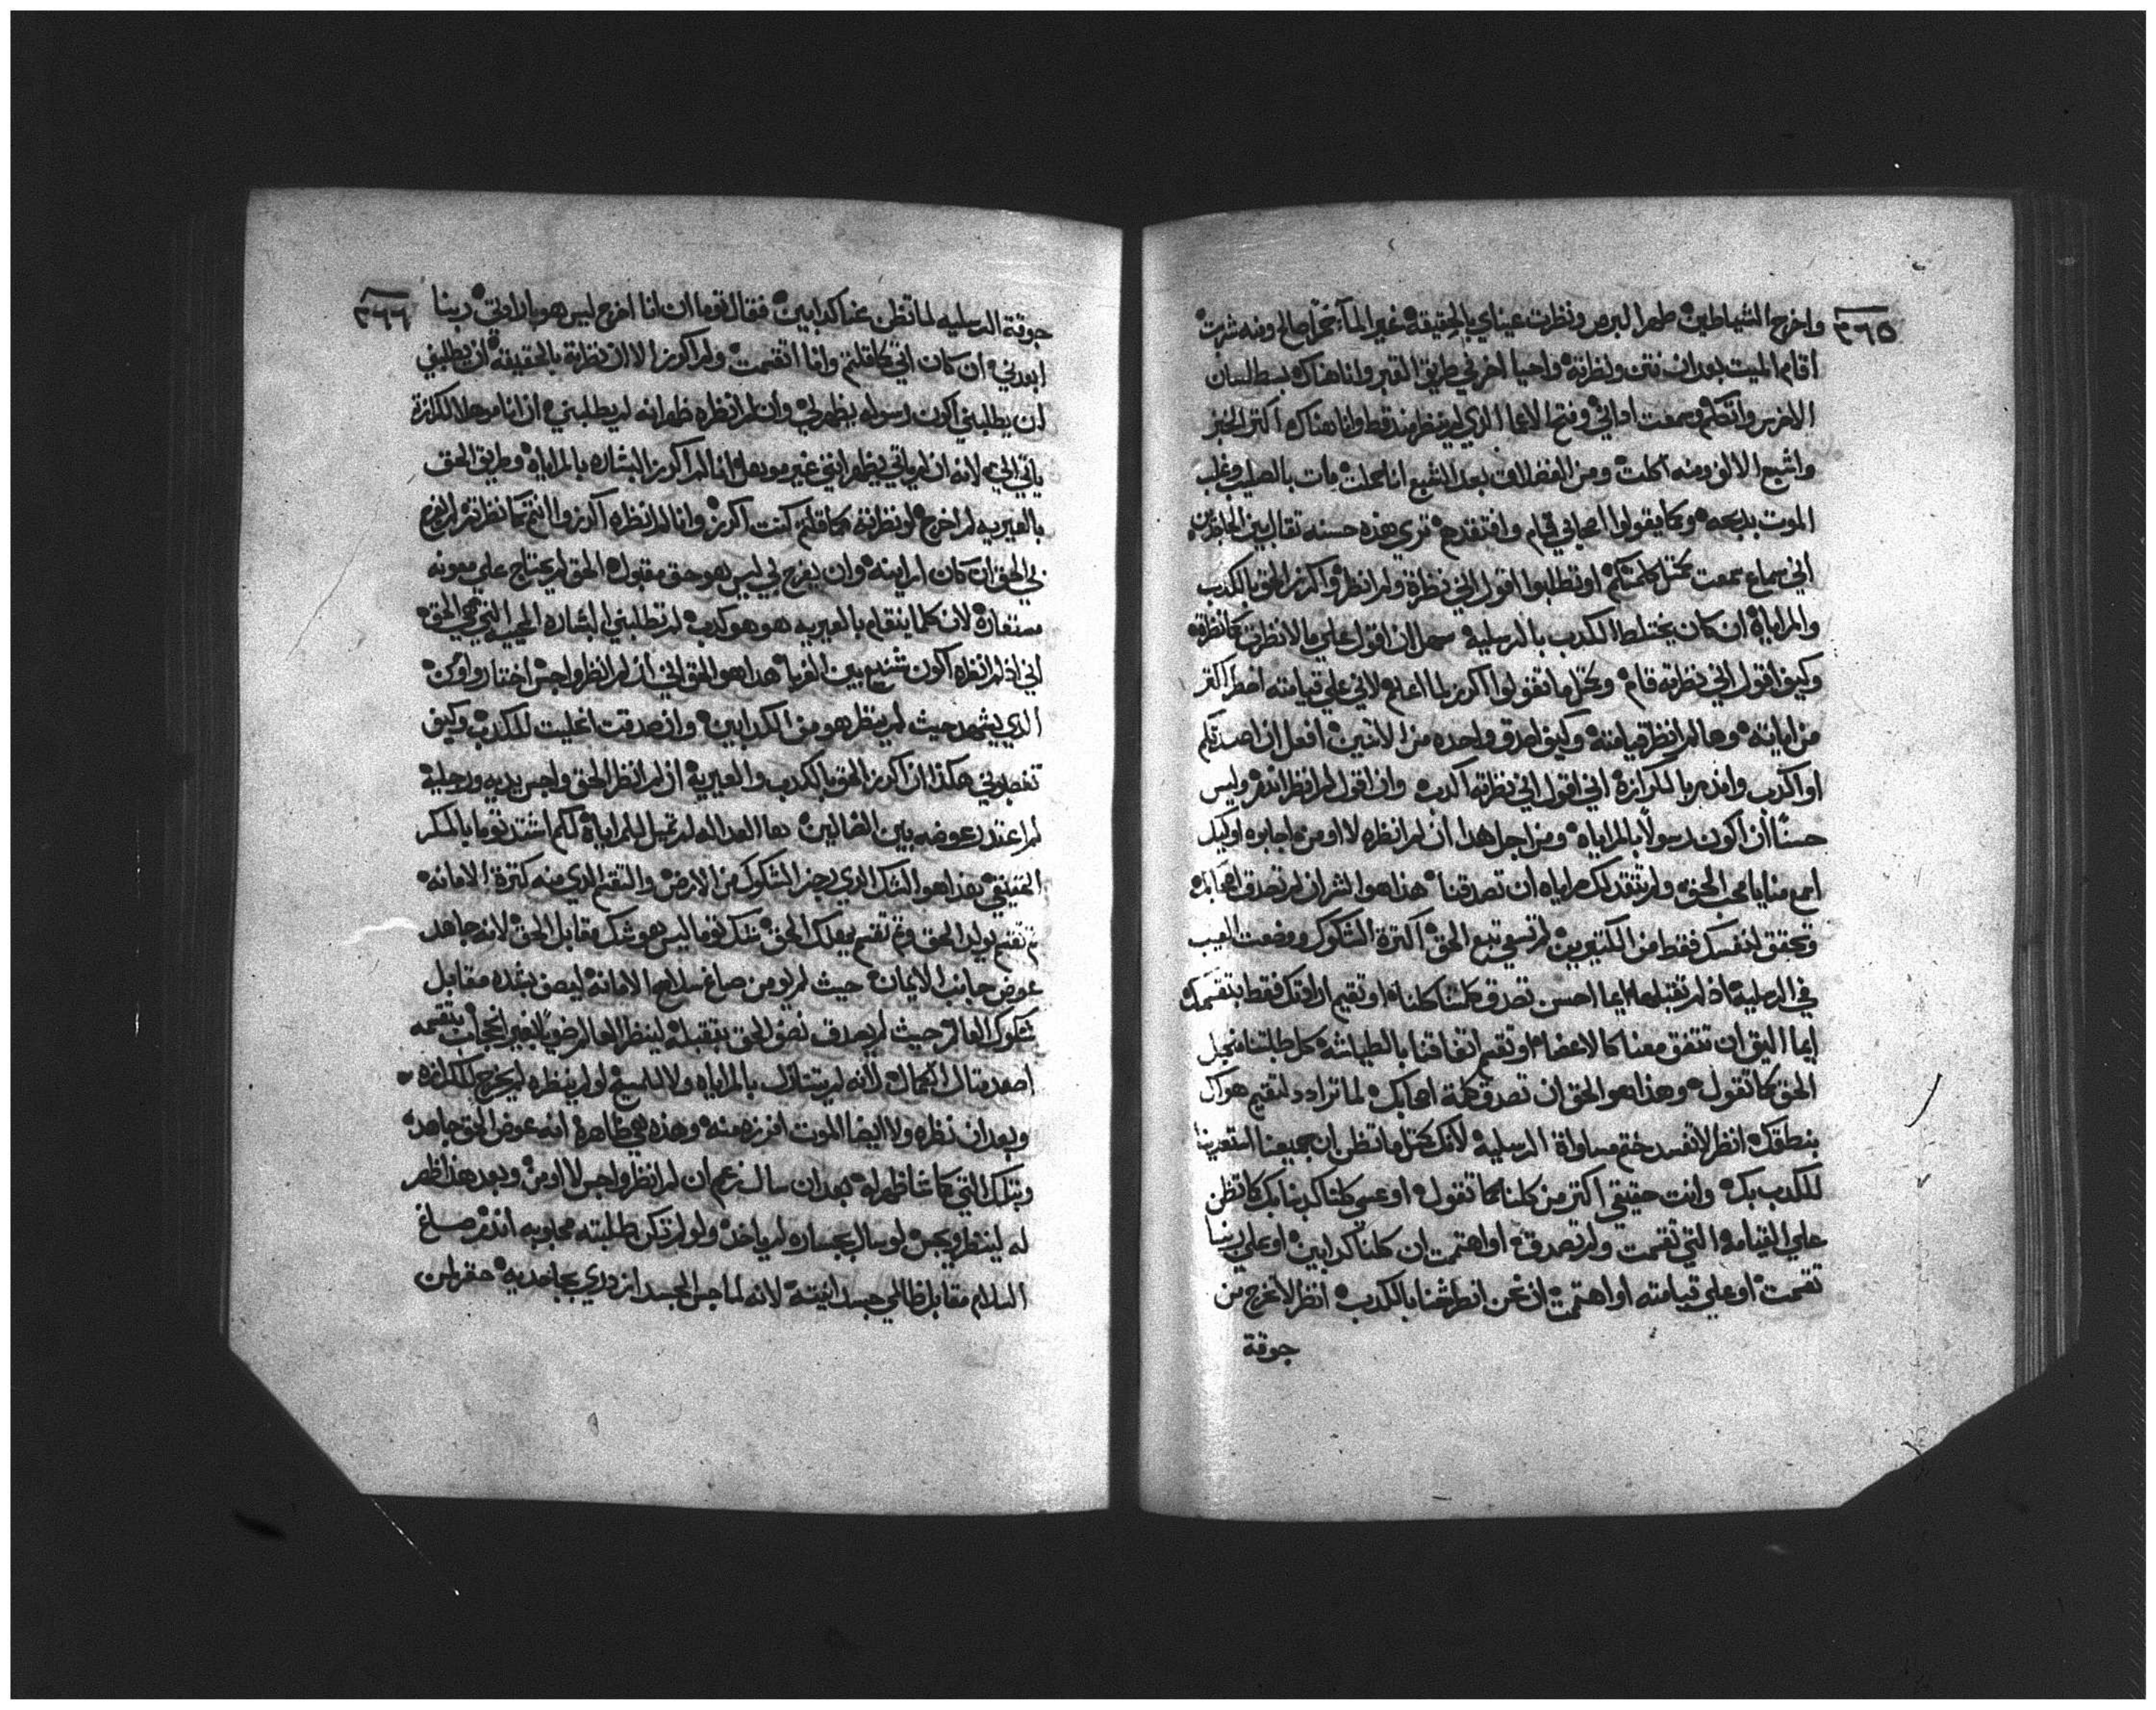 ٣٦٥
واخرج الشياطين طهر البرص ونظرت عيناي بالحقيقة غير المآء خمراً صالح ومنه شربت
اقام الميت بعد ان نتن ونظرته واحيا اخر في طريق القبر وانا هناك بسط لسان
الاخرس واتكلم وسمعت اداني وفتح الاعما الذي لم ينظر منذ قط وانا هناك اكتر الخبز
واشبع الالاف ومنه اكلت ومن الفضلات بعد الشبع انا حملت مات بالصليب وغلب
الموت بدبحه وكما يقولوا اصحابي قام وافتقدهم تري هذه حسنه تقال بين
اني سماع سمعت كمتل كلمتكم او تطلبوا اقول اني نظرة ولم انظر واكرز الحق بالكدب
والمراياة ان كان يختلط الكدب بالرسلية سهل ان اقول علي ما لا نظرتة كانظرته
وكيف اقول اني نظرته قام وكمتل ما تقولوا اكرز لما اغلي لاني علي قيامته اضطر اكتر
من اماتته وها لم انظر قيامته وكيف اصدق واحده من الاتنين افعل ان اصدقكم
او اكدب واندر بالكرازة اني اقول اني نظرته اكدب وان اقول لم انظر اندر وليس
حسناً ان اكون رسولاً بالمراياة ومن اجل هذا ان لم انظره لا اومن اجابوه اوليك
اسمع منا يا محب الحق ولم نتقدلك مراياه ان تصدقنا هذا هو الشر ان لم تصدق اصحابك
وتحقق لنفسك فقط من الكتيرين لم تسعي تبع الحق اكترة الشكوك ووضعت العيب
في الرسلية اذ لم تقبلها ايما احسن تصدق كلمتنا كلنا او تقيم ارادتك فقط بتقسمك
ايما اليق ان تتفق معنا كالاعضاء او تقيم اتفاقنا بالطياشه كل طلبتنا من اجل
الحق كما تقول وهذا هو الحق ان تصدق كلمة اصحابك لما تزادد لتقيم هواك
بنطقك انظر لا تفسد ختم مساواة الرسلية لانك كمتل ما تظن ان جميعنا استعرينا
للكدب بك وانت حقيقي اكتر من كلنا كما تقول او عسي كلنا كدبنا بك كما تظن
علي القيامه التي تقسمت ولم تصدق او اهتميت ان كلنا كدابين او علي ربنا
تقسمت او علي قيامته او اهتميت ان نحن انطرشنا بالكدب انظر لا تخرج من
جوقة
٣٦٦
جوقة الرسليه لما تظن عنا كدابين فقال توما ان انا اخرج ليس هو بارادتي ربنا
ابعدني ان كان اني كما قلتم وانا انقسمت ولم اكرز الا ان نظرته بالحقيقه ان يطلبني
ان يطلبني اكون رسوله يظهر لي وان لم انظره ظهر انه لم يطلبني ان انا موهلا للكرازة
ياتي الي لانه ان لم ياتي يظهر انني غير موهل انا لم اكرز البشاره بالمراياة وطريق الحق
بالعيريه لم اخرج لو نظرته كما قلتم كنت اكرز وانا لم انظره اكرزوا انتم كما نظرتم
لي الحق ان كان امراينه وان يفرح بي ليس هو حق مقبول الحق لم يحتاج علي معونه
مستعارة لان كلما ينقام بالعيريه هو هو كدب لم تطلبني البشاره العجيبه التي هي الحق
اني اذ لم انظره اكون شنيع بين القريا هدا هو الحق اني ان لم انظر واجس اختار واومن
الدي يشهد حيث لم ينظر هو من الكدابين وان صدقت اغليت للكدب وكيف
تغصبوني هكذا ان اكرز الحق بالكدب والعيرية ان لم انظر الحق واجس يديه ورجليه
لم اعتد رعوضه بين الضالين هدا العدالله لم تميل للمراياة لكم اشتد توما بالمكر
الحقيقي هذا هو الشك الدي رجز الشكوك من الارض والتقسم الدي منه كترة الامانه
لم تقسم يولد الحق ولم تقسم يملك الحق شك توما ليس هو شك مقابل الحق لانه جاهد
عوض جانب الايمان حيث لم يومن صاغ سلاح الامانه ليصف بشده مقابل
شكوك العالم حيث لم يصدق نصف الحق بتقبله لينظر العالم ضوياً بغير انحجاب بتقسمه
اصعد مثال الكمال لانه لم يتنازل بالمراياه ولا للمسيح لو لم ينظره لم يخرج للكرازه
وبعد ان نظره ولا ايضا الموت افرزه منه وهذه هي ظاهرة انه عوض الحق جاهد
وبتلك التي كما شا ظهر له بعد ان سال زعم ان لم انظر واجس لا اومن وبعد هذا ظهر
له لينظر ويجس لو سال بجساره لم ياخد ولو لم تكن طلبته محبوبه اندر صاغ
السلام مقابل ظالمي جسد انيته لانه لما جس الجسد ازدري بجاحديه حقر لمن